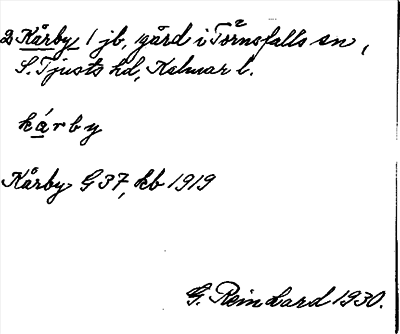 2 Kårby, 1 jb, gård i Törnsfalls sn,
S. Tjusts hd, Kalmar l.
kárby
Kårby G 37, kb 1919
G. Reinhard 1930.